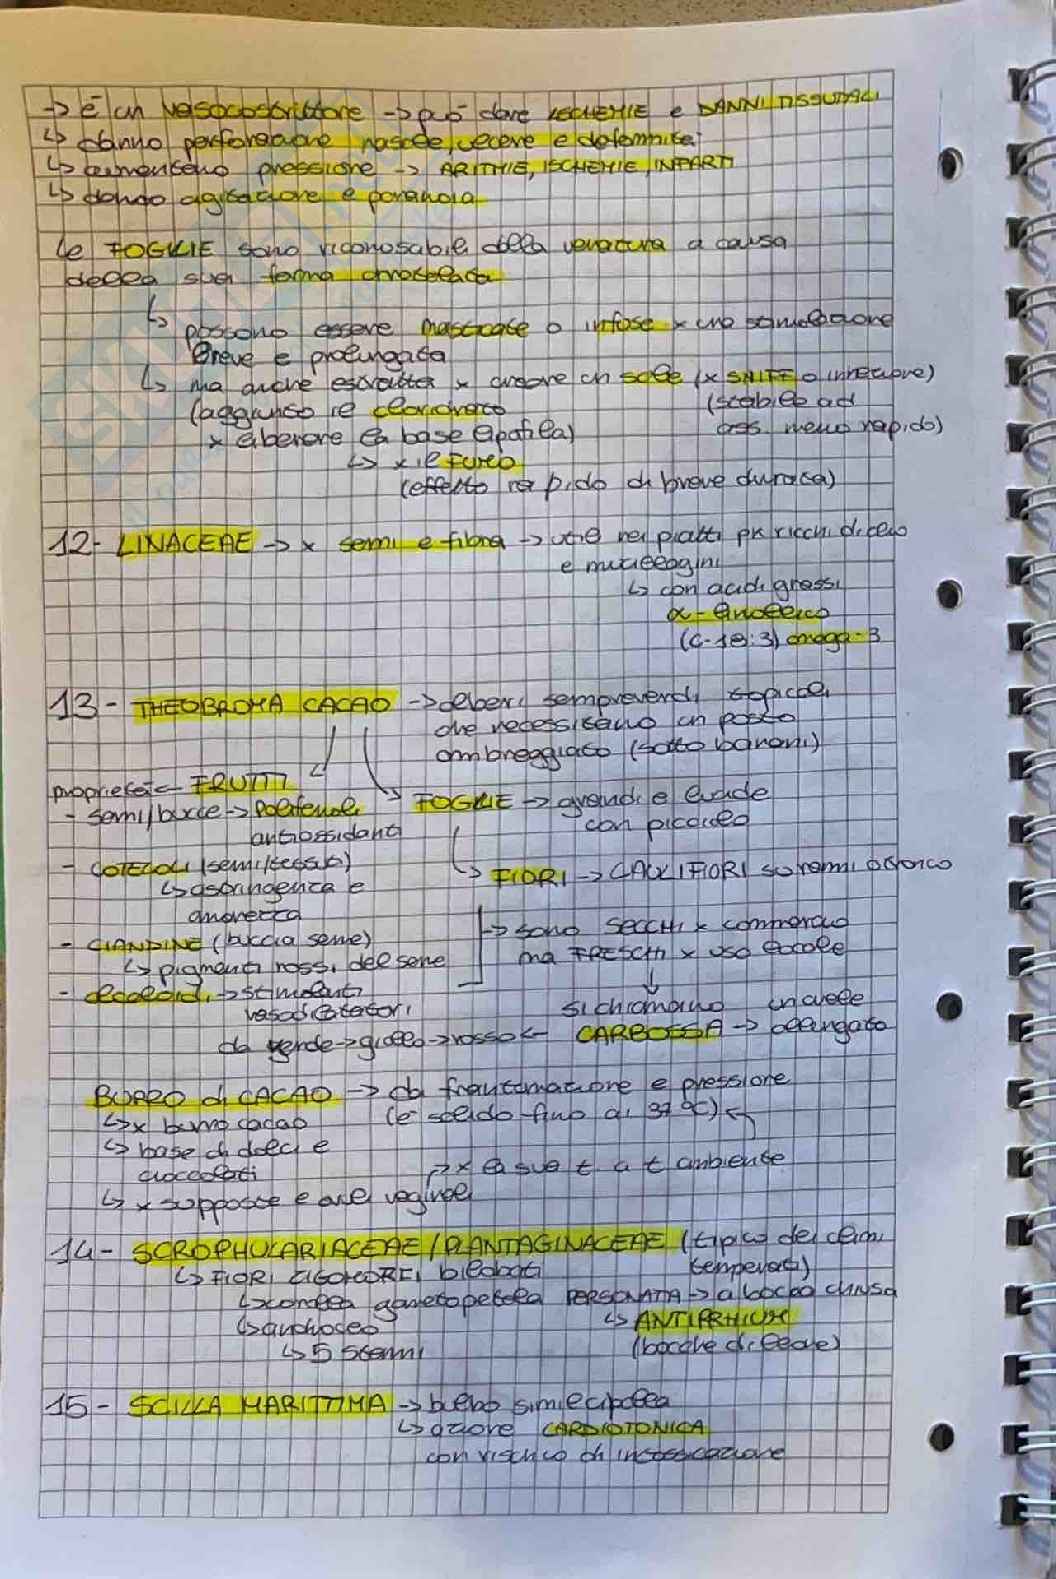 → è un vasocostrittore → può dare ISCHEMIE e DANNI TISSUTALI
↳ danno perforazione nasale, ulcere e deformità
↳ aumentano pressione → ARITMIE, ISCHEMIE, INFARTI
↳ dando agitazione e paranoia
Le FOGLIE sono riconoscibili dalla venatura a causa
della sua forma
↳ possono essere masticate o infuse x una stimolazione
breve e prolungata
↳ ma anche estratte x creare un sale (x SNIFF o iniezione)
(aggiunto le cloridrato (stabile ad
x liberare la base lipofila) ass. meno rapido)
↳ x il FUMO
(effetto rapido di breve durata)
12- LINACEAE → x semi e fibra → utile nei piatti più ricchi di
e mucillagini
↳ con acidi grassi
α-linolenico
(C-18:3) omega-3
13- THEOBROMA CACAO → alberi sempreverdi tropicali
che necessitano un posto
ombreggiato (sotto banani)
proprietà ← FRUTTI
- semi/bucce → Polifenoli
antiossidanti
FOGLIE → grandi e lucide
con picciolo
- COTILEDONI (semi/tessuto)
↳ astringenza e
amarezza
↳ FIORI → CAULIFIORI su rami o tronco
- (buccia seme)
↳ pigmenti rossi del seme
→ sono SECCHI x commercio
ma FRESCHI x uso locale
- alcaloidi → stimolanti
vasodilatatori
si chiamano
CABOSSA → allungata
da verde → giallo → rosso ←
BURRO di CACAO → da frantumazione e pressione
↳ x burro cacao (è solido fino ai 37 °C)
↳ base di dolci e
cioccolati
→ x la sua t a t ambiente
↳ x supposte e ovuli vaginali
14- SCROPHULARIACEAE / PLANTAGINACEAE (tipico dei climi
temperati)
↳ FIORI ZIGOMORFI bilobati
↳ corolla gametopetala PERSONATA → a bocca chiusa
↳ ANTIRRHIUM
(bocche di leone)
↳ 5 stami
15- SCILLA MARITTIMA → bulbo simil cipolla
↳ azione CARDIOTONICA
con rischio di intossicazione